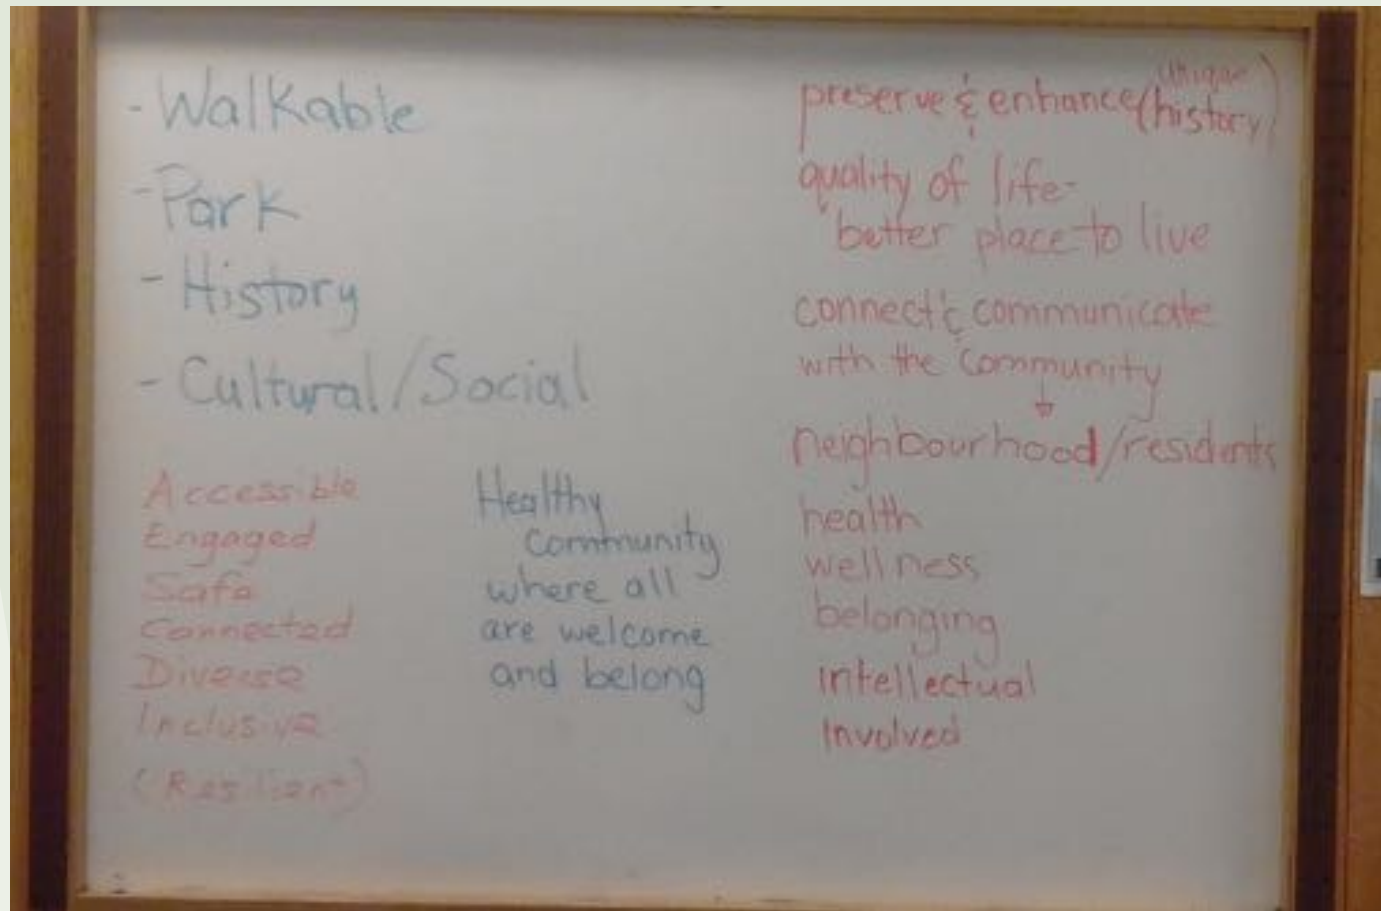 - Walkable
- Park
- History
- Cultural/Social
Accessible
Engaged
Safe
Connected
Diverse
Inclusive
(Resilient)
Healthy
Community
where all
are welcome
and belong
unique
preserve & enhance (history)
quality of life-
"better place to live
connect & communicate
with the community
neighbourhood/residents
health
wellness
belonging
intellectual
involved